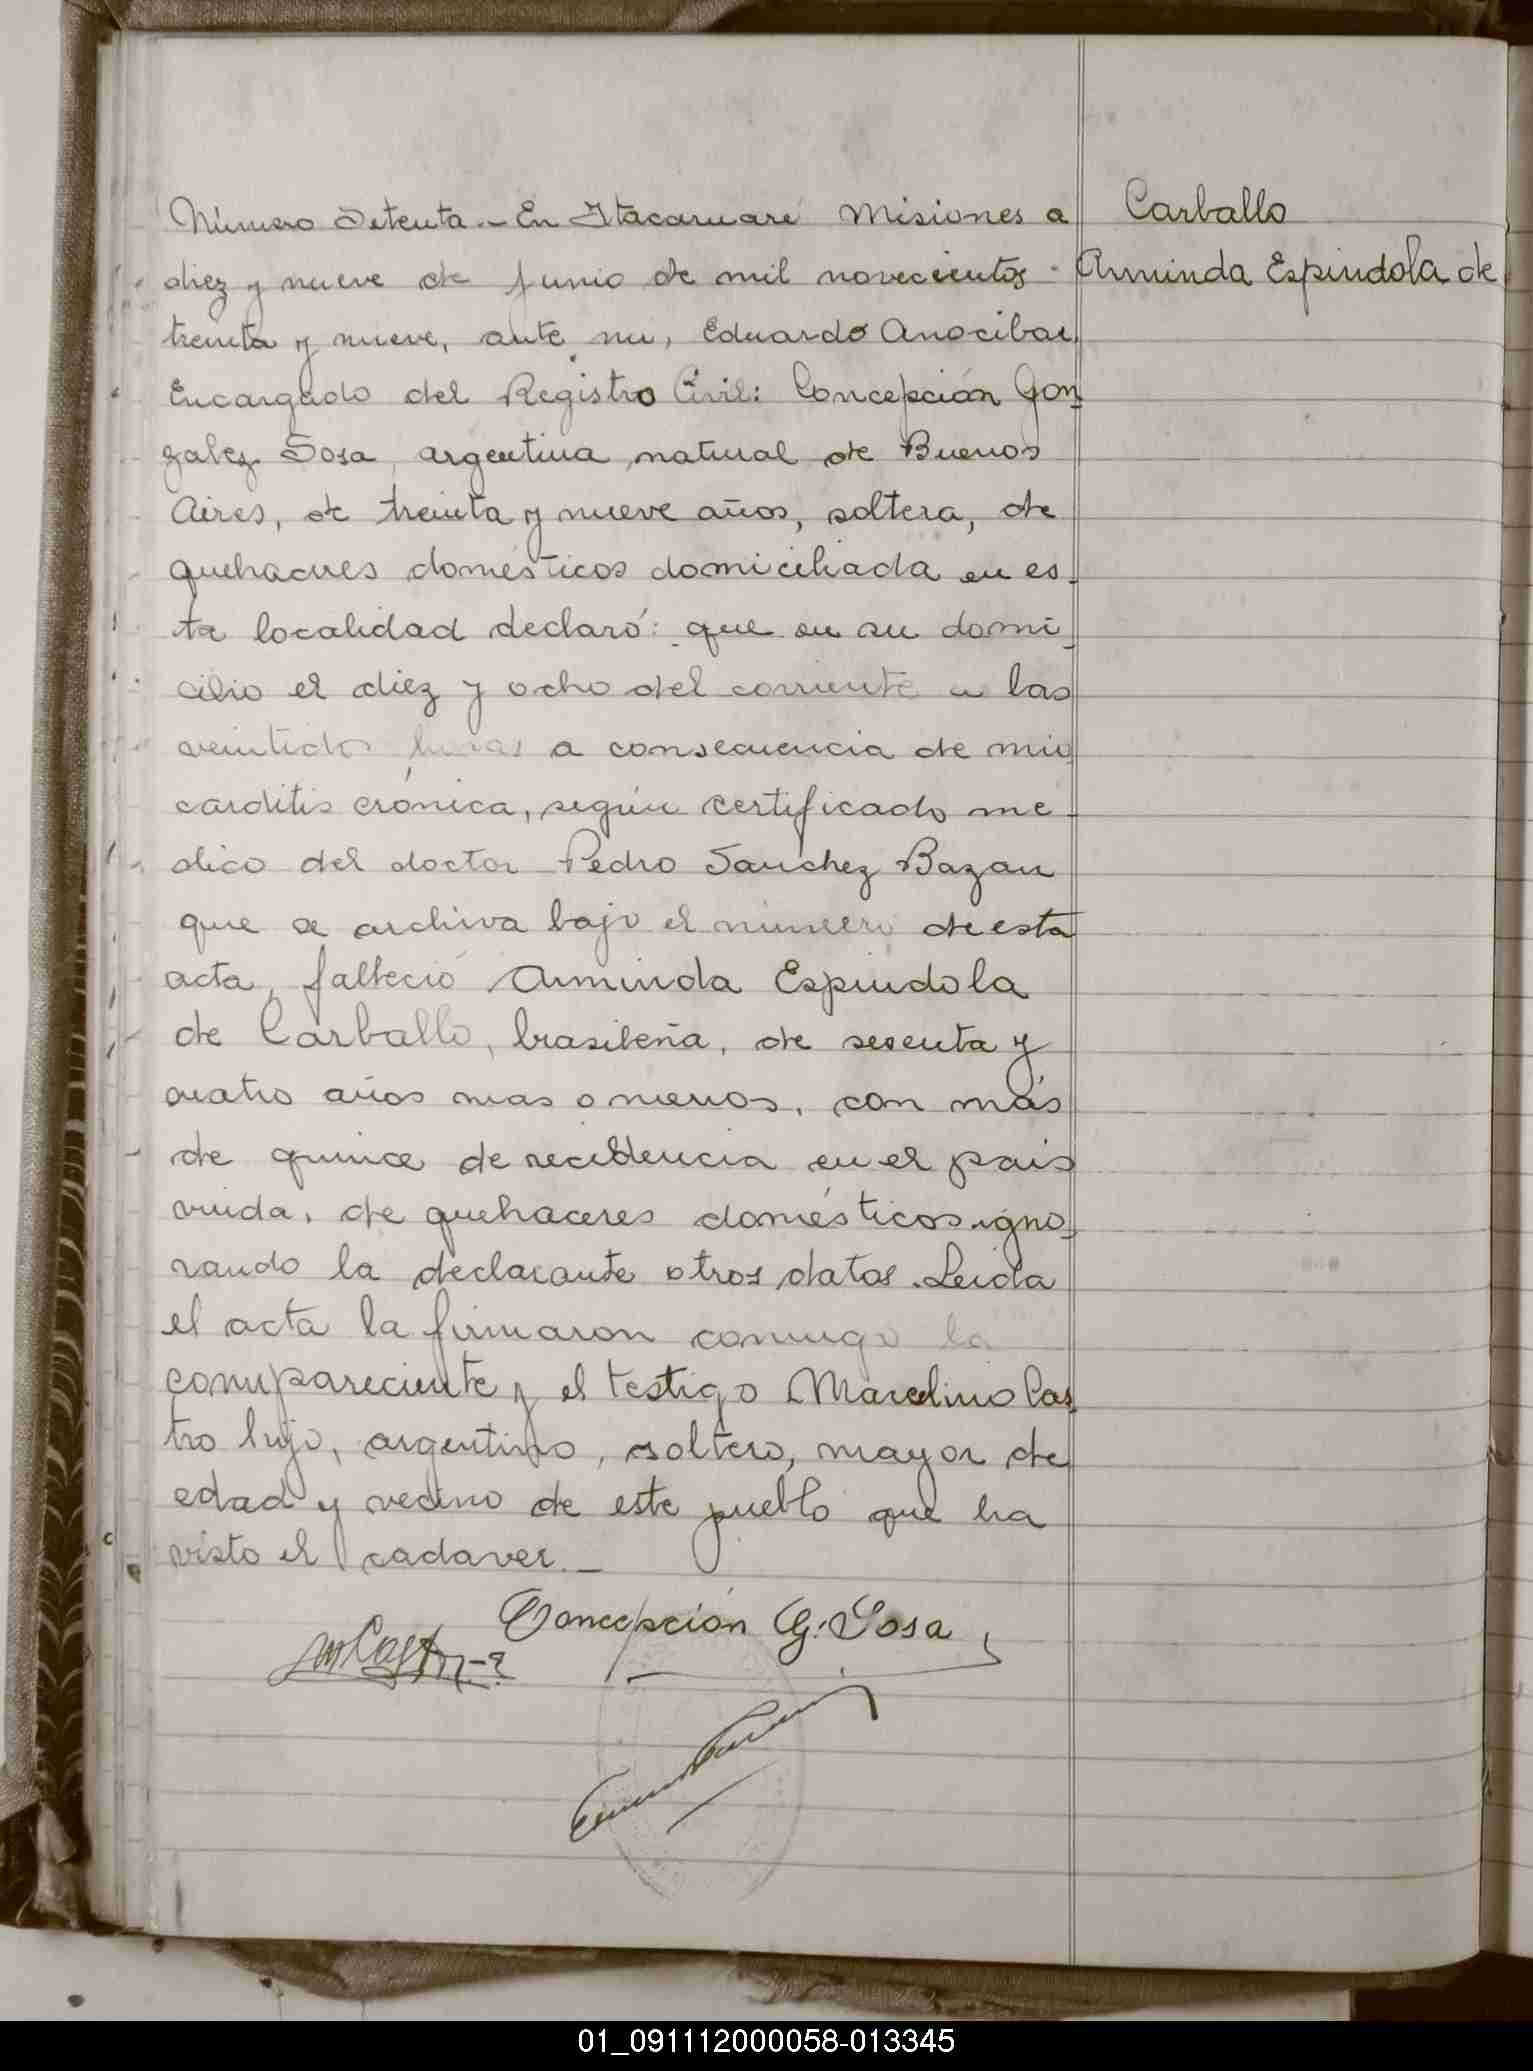 Número Setenta.- En Itacaruaré Misiones a
diez y nueve de junio de mil novecientos
treinta y nueve, ante mi, Eduardo Anocibar
Encargado del Registro Civil: Concepción Gon
zalez Sosa, argentina, natural de Buenos
Aires, de treinta y nueve años, soltera, de
quehaceres domésticos domiciliada en es-
ta localidad declaró: que en su domi-
cilio el diez y ocho del corriente a las
veintidos horas a consecuencia de mio
carditis crónica, según certificado me-
dico del doctor Pedro Sanchez Bazan
que se archiva bajo el número de esta
acta, falleció Arminda Espindola
de Carballo, brasileña, de sesenta y
cuatro años mas o menos, con más
de quince de recidencia en el pais
viuda, de quehaceres domésticos igno-
rando la declarante otros datos. Leida
el acta la firmaron conmigo la
compareciente y el testigo Marcelino Cas-
tro hijo, argentino, soltero, mayor de
edad y vecino de este pueblo que ha
visto el cadaver.-
Concepción G. Sosa
Carballo
Arminda Espindola de
01_091112000058-013345